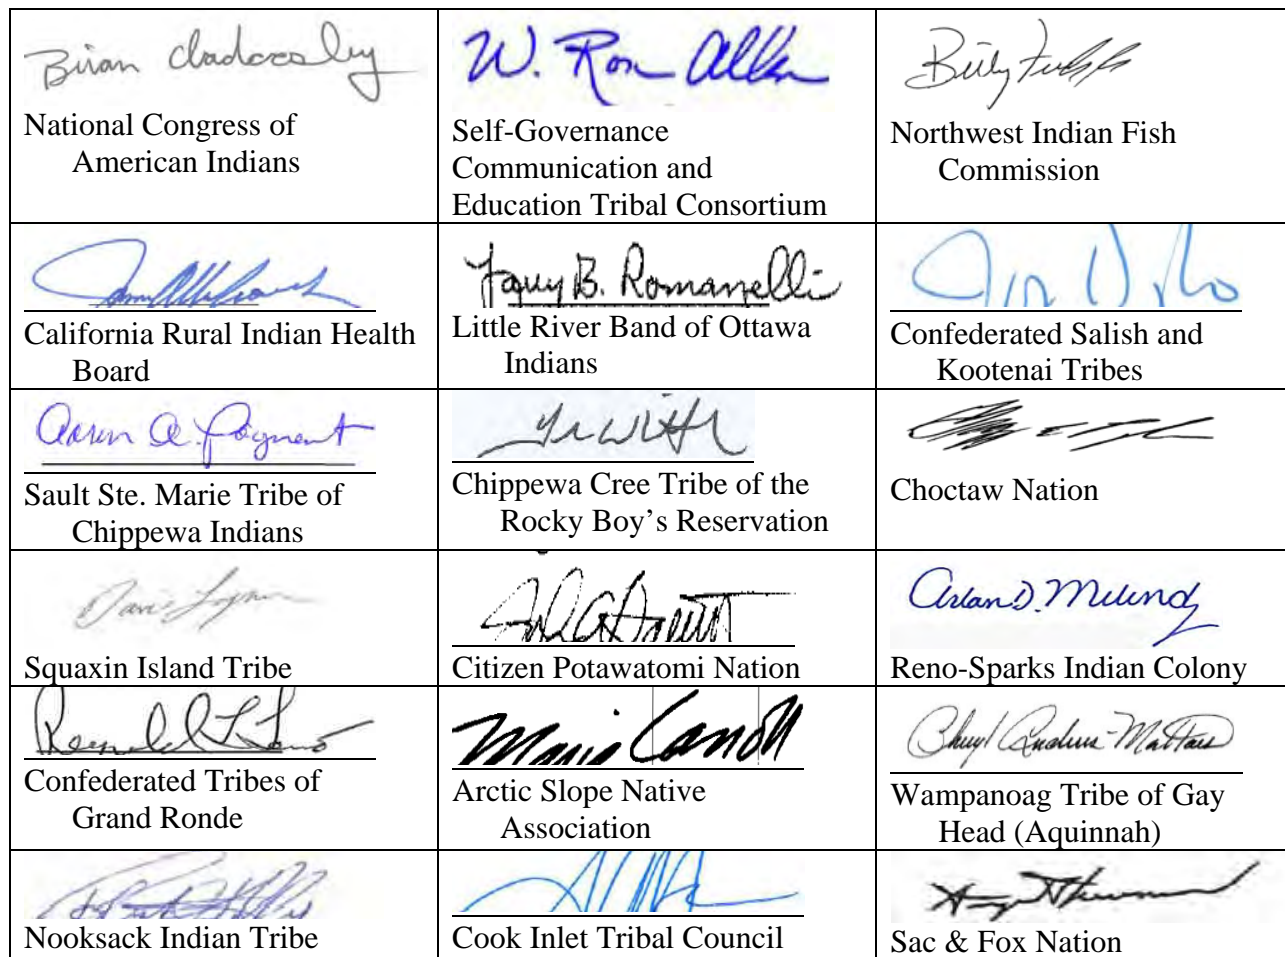 Brian Cladoosby
National Congress of
American Indians
W. Ron Allen
Self-Governance
Communication and
Education Tribal Consortium
Billy
Northwest Indian Fish
Commission
California Rural Indian Health
Board
B. Romanelli
Little River Band of Ottawa
Indians
Confederated Salish and
Kootenai Tribes
Aaron A. Payment
Sault Ste. Marie Tribe of
Chippewa Indians
Chippewa Cree Tribe of the
Rocky Boy’s Reservation
Choctaw Nation
Squaxin Island Tribe
Citizen Potawatomi Nation
Arlan D. Melendez
Reno-Sparks Indian Colony
Confederated Tribes of
Grand Ronde
Marie Carroll
Arctic Slope Native
Association
Cheryl Andrews-Maltais
Wampanoag Tribe of Gay
Head (Aquinnah)
Nooksack Indian Tribe
Cook Inlet Tribal Council
Sac & Fox Nation